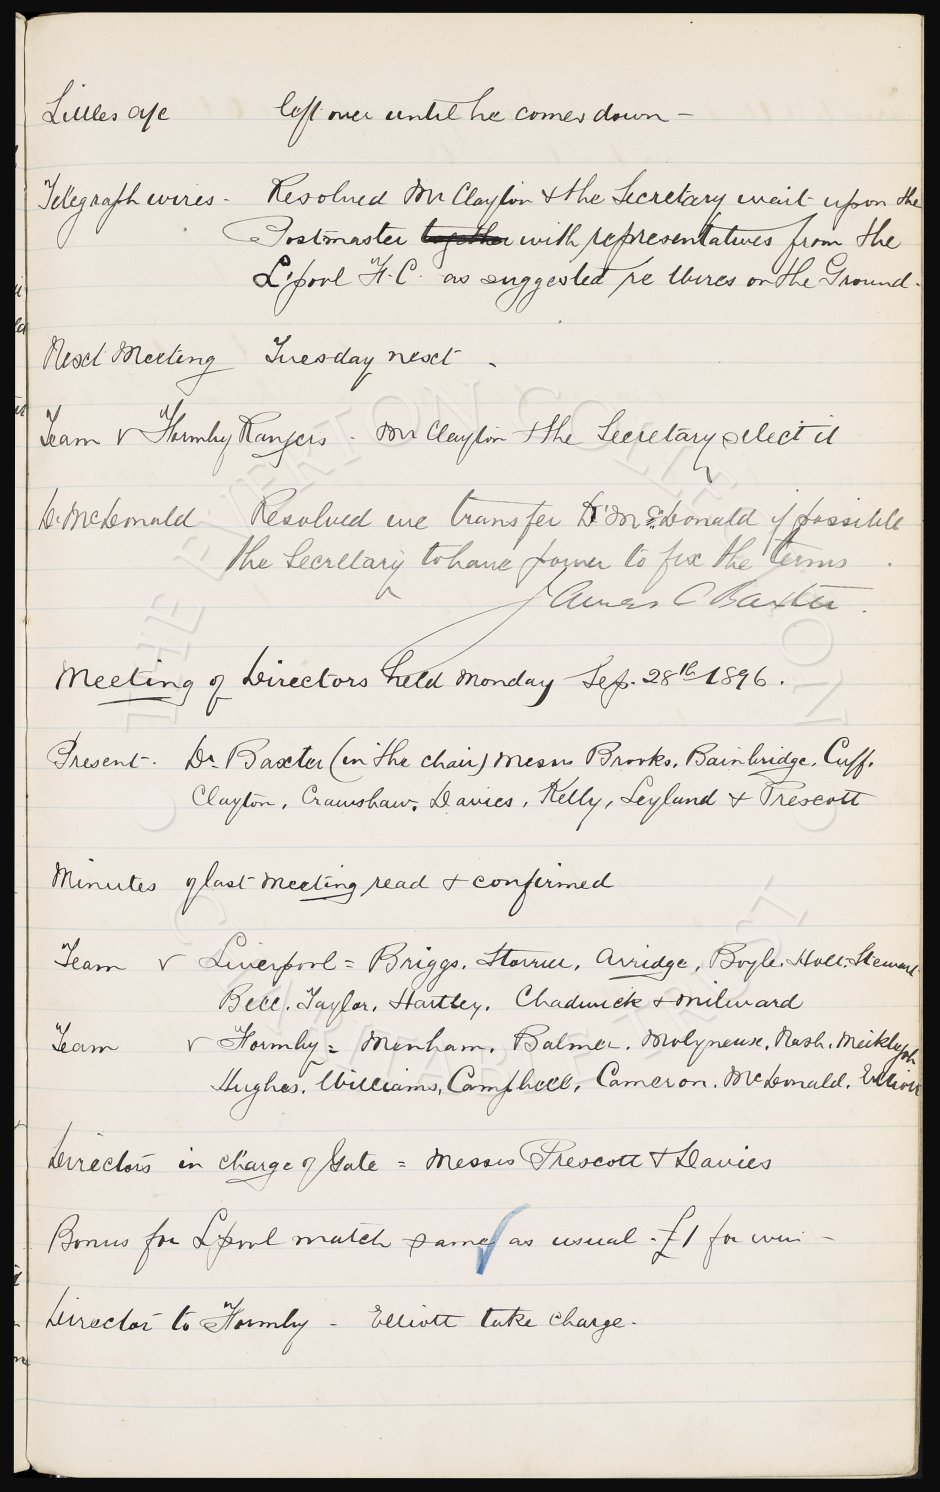 Lilles a/c left over until he comes down -
Telegraph wires - Resolved Mr Clayton & the Secretary wait upon the
Postmaster together with representatives from the
L'pool F.C. as suggested re Wires on the Ground -
Next Meeting Tuesday next -
Team v Formby Rangers - Mr Clayton & the Secretary select it
D. McDonald Resolved we transfer D. McDonald if possible
the Secretary to have power to fix the terms.
James C Baxter.
Meeting of Directors held Monday Sep. 28th 1896.
Present - Dr. Baxter (in the chair) Messrs Brooks, Bainbridge, Cuff,
Clayton, Crawshaw, Davies, Kelly, Leyland & Prescott
Minutes of last meeting read & confirmed
Team v Liverpool = Briggs, Storrier, Arridge, Boyle, Holt, Stewart
Bell, Taylor, Hartley, Chadwick & Milward
Team v Formby = Menham, Balmer, Molyneux, Nash, Meiklejoh
Hughes, Williams, Campbell, Cameron, McDonald, Elliott
Directors in charge of Gate = Messrs Prescott & Davies
Bonus for L'pool match same as usual - £1 for win -
Director to Formby - Elliott take charge.
THE EVERTON COLLECTION
CHARITABLE TRUST